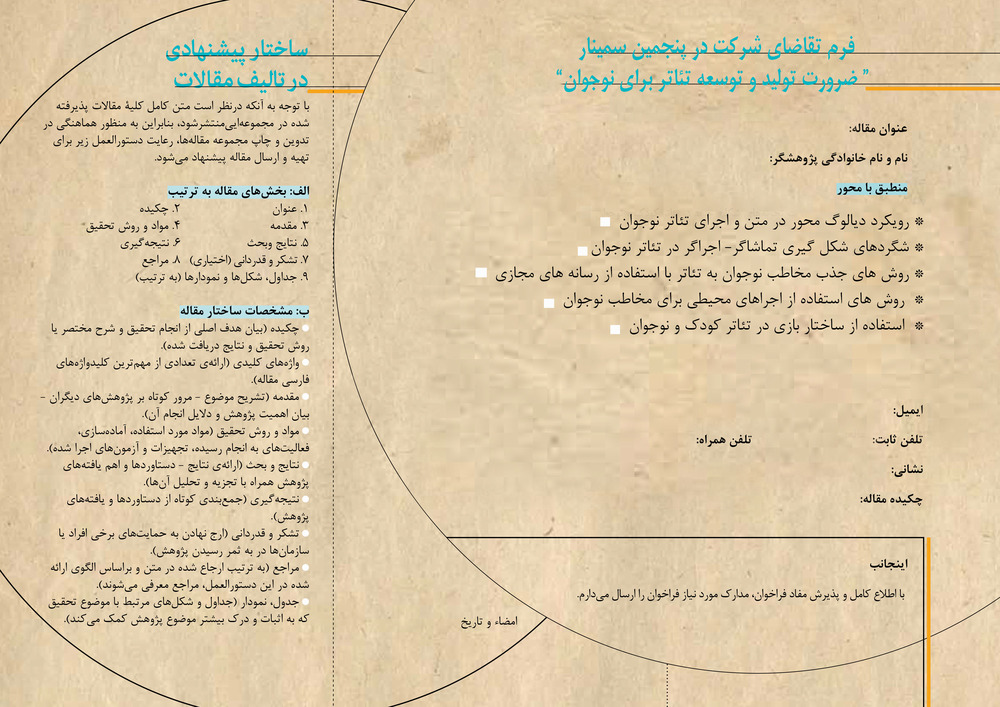 فرم تقاضای شرکت در پنجمین سمینار
" ضرورت تولید و توسعه تئاتر برای نوجوان"
عنوان مقاله:
نام و نام خانوادگی پژوهشگر:
منطبق با محور
رویکرد دیالوگ محور در متن و اجرای تئاتر نوجوان
شگردهای شکل گیری تماشاگر- اجراگر در تئاتر نوجوان
روش های جذب مخاطب نوجوان به تئاتر با استفاده از رسانه های مجازی
روش های استفاده از اجراهای محیطی برای مخاطب نوجوان
استفاده از ساختار بازی در تئاتر کودک و نوجوان
ایمیل:
تلفن ثابت: تلفن همراه:
نشانی:
چکیده مقاله:
اینجانب
با اطلاع کامل و پذیرش مفاد فراخوان، مدارک مورد نیاز فراخوان را ارسال می‌دارم.
امضاء و تاریخ
ساختار پیشنهادی
در تالیف مقالات
با توجه به آنکه درنظر است متن کامل کلیهٔ مقالات پذیرفته
شده در مجموعه‌ایی‌منتشرشود، بنابراین به منظور هماهنگی در
تدوین و چاپ مجموعه مقاله‌ها، رعایت دستورالعمل زیر برای
تهیه و ارسال مقاله پیشنهاد می‌شود.
الف: بخش‌های مقاله به ترتیب
۱. عنوان ۲. چکیده
۳. مقدمه ۴. مواد و روش تحقیق
۵. نتایج وبحث ۶. نتیجه‌گیری
۷. تشکر و قدردانی (اختیاری) ۸. مراجع
۹. جداول، شکل‌ها و نمودارها (به ترتیب)
ب: مشخصات ساختار مقاله
چکیده (بیان هدف اصلی از انجام تحقیق و شرح مختصر یا
روش تحقیق و نتایج دریافت شده).
واژه‌های کلیدی (ارائه‌ی تعدادی از مهم‌ترین کلیدواژه‌های
فارسی مقاله).
مقدمه (تشریح موضوع - مرور کوتاه بر پژوهش‌های دیگران -
بیان اهمیت پژوهش و دلایل انجام آن).
مواد و روش تحقیق (مواد مورد استفاده، آماده‌سازی،
فعالیت‌های به انجام رسیده، تجهیزات و آزمون‌های اجرا شده).
نتایج و بحث (ارائه‌ی نتایج - دستاوردها و اهم یافته‌های
پژوهش همراه با تجزیه و تحلیل آن‌ها).
نتیجه‌گیری (جمع‌بندی کوتاه از دستاوردها و یافته‌های
پژوهش).
تشکر و قدردانی (ارج نهادن به حمایت‌های برخی افراد یا
سازمان‌ها در به ثمر رسیدن پژوهش).
مراجع (به ترتیب ارجاع شده در متن و براساس الگوی ارائه
شده در این دستورالعمل، مراجع معرفی می‌شوند).
جدول، نمودار (جداول و شکل‌های مرتبط با موضوع تحقیق
که به اثبات و درک بیشتر موضوع پژوهش کمک می‌کند).